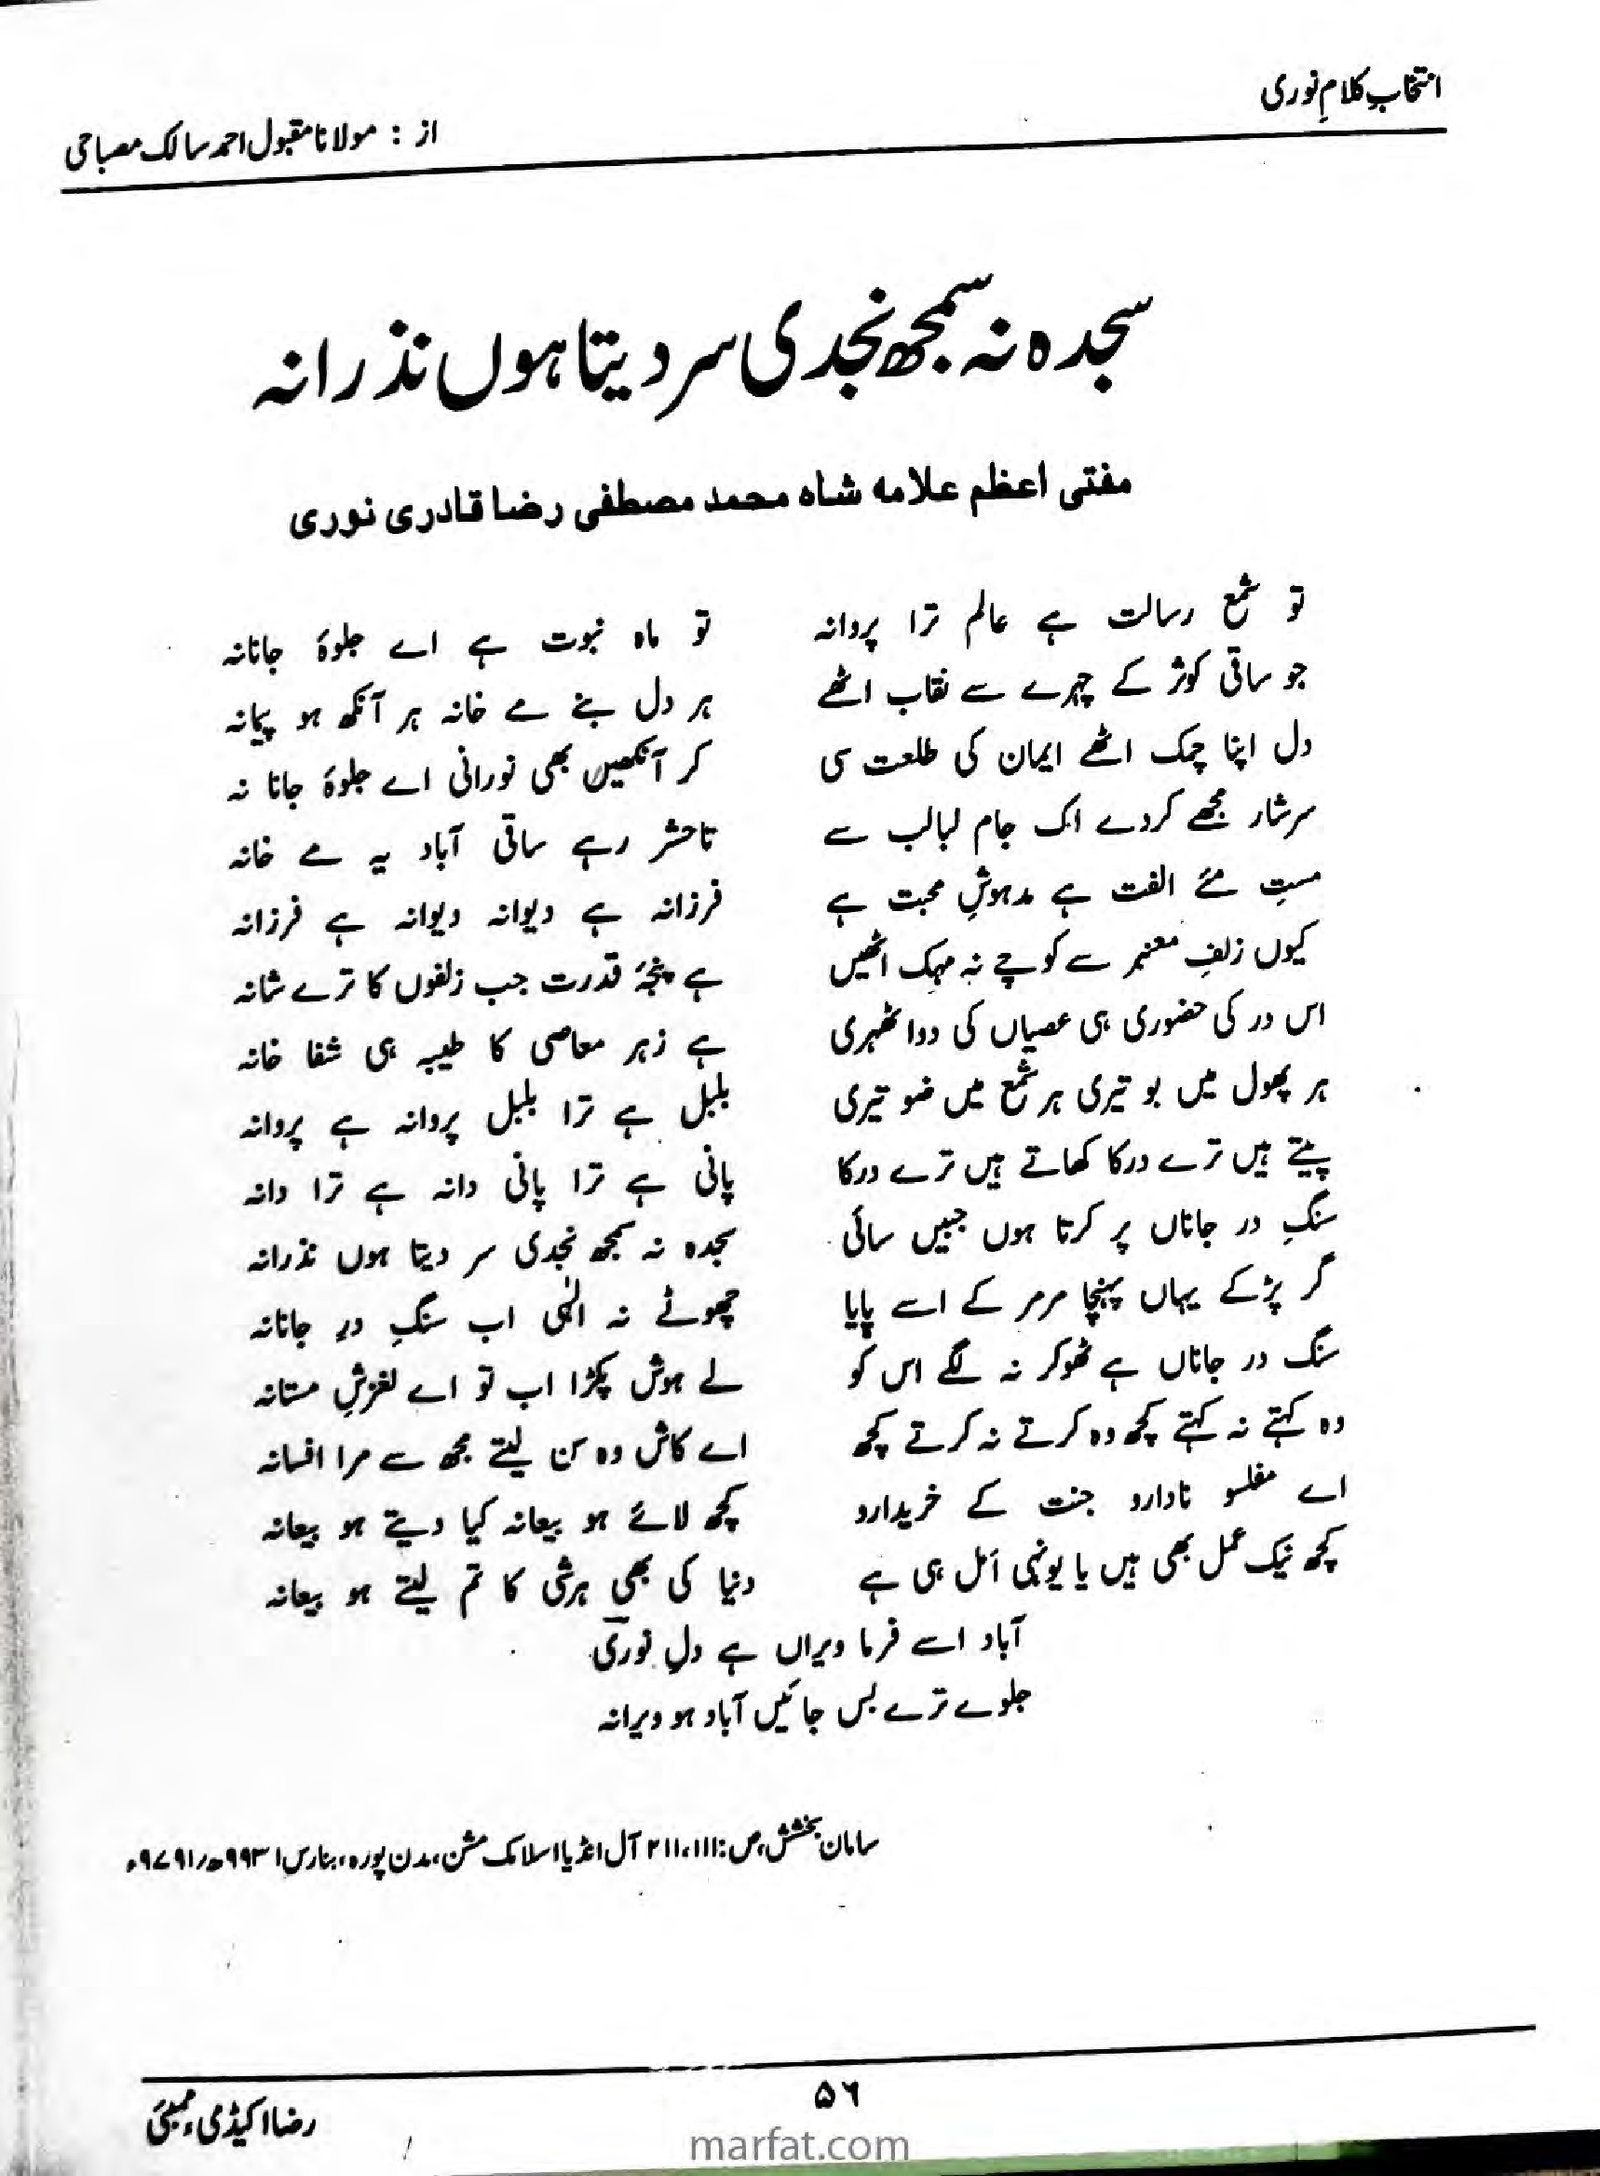 انتخابِ کلامِ نوری
از : مولانا مقبول احمد سالک مصباحی
سجدہ نہ سمجھ نجدی سر دیتا ہوں نذرانہ
مفتی اعظم علامہ شاہ محمد مصطفی رضا قادری نوری
تو شمع رسالت ہے عالم ترا پروانہ تو ماہ نبوت ہے اے جلوۂ جانانہ
جو ساقی کوثر کے چہرے سے نقاب اٹھے ہر دل بنے مے خانہ ہر آنکھ ہو پیمانہ
دل اپنا چمک اٹھے ایمان کی طلعت سی کر آنکھیں بھی نورانی اے جلوۂ جانا نہ
سرشار مجھے کردے اک جام لبالب سے تاحشر رہے ساقی آباد یہ مے خانہ
مستِ مئے الفت ہے مدہوشِ محبت ہے فرزانہ ہے دیوانہ دیوانہ ہے فرزانہ
کیوں زلفِ معنبر سے کوچے نہ مہک اٹھیں ہے پنجۂ قدرت جب زلفوں کا ترے شانہ
اس در کی حضوری ہی عصیاں کی دوا ٹھہری ہے زہر معاصی کا طیبہ ہی شفا خانہ
ہر پھول میں بو تیری ہر شمع میں ضو تیری بلبل ہے ترا بلبل پروانہ ہے پروانہ
پیتے ہیں ترے درکا کھاتے ہیں ترے درکا پانی ہے ترا پانی دانہ ہے ترا دانہ
سنگِ در جاناں پر کرتا ہوں جبیں سائی سجدہ نہ سمجھ نجدی سر دیتا ہوں نذرانہ
گر پڑکے یہاں پہنچا مرمر کے اسے پایا چھوٹے نہ الٰہی اب سنگِ درِ جانانہ
سنگ در جاناں ہے ٹھوکر نہ لگے اس کو لے ہوش پکڑا اب تو اے لغزشِ مستانہ
وہ کہتے نہ کہتے کچھ وہ کرتے نہ کرتے کچھ اے کاش وہ سن لیتے مجھ سے مرا افسانہ
اے مفلسو نادارو جنت کے خریدارو کچھ لائے ہو بیعانہ کیا دیتے ہو بیعانہ
کچھ نیک عمل بھی ہیں یا یونہی اَمل ہی ہے دنیا کی بھی ہرشی کا تم لیتے ہو بیعانہ
آباد اسے فرما ویراں ہے دلِ نوری
جلوے ترے بس جائیں آباد ہو ویرانہ
سامان بخشش، ص: ۱۱۱، ۲۱۱ آل انڈیا اسلامک مشن، مدن پورہ، بنارس ۹۹۳۱ھ/۹۷۹۱ء
۵۶
رضا اکیڈمی، ممبئی
marfat.com